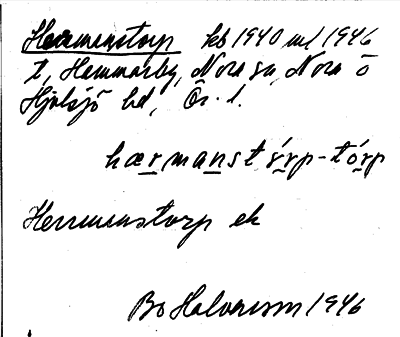 Herrmanstorp kb 1940 ml 1946
t, Hammarby, Nora sn, Nora o
Hjulsjö bd, Ör. l.
hærmanstórp - tórp
Herrmanstorp ek
Bo Halvarsson 1946